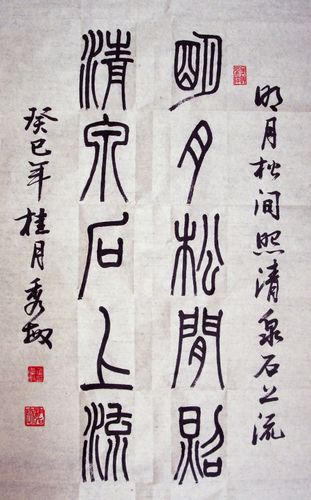 明月松間照清泉石上流
明月松間照
清泉石上流
癸巳年桂月秀敏